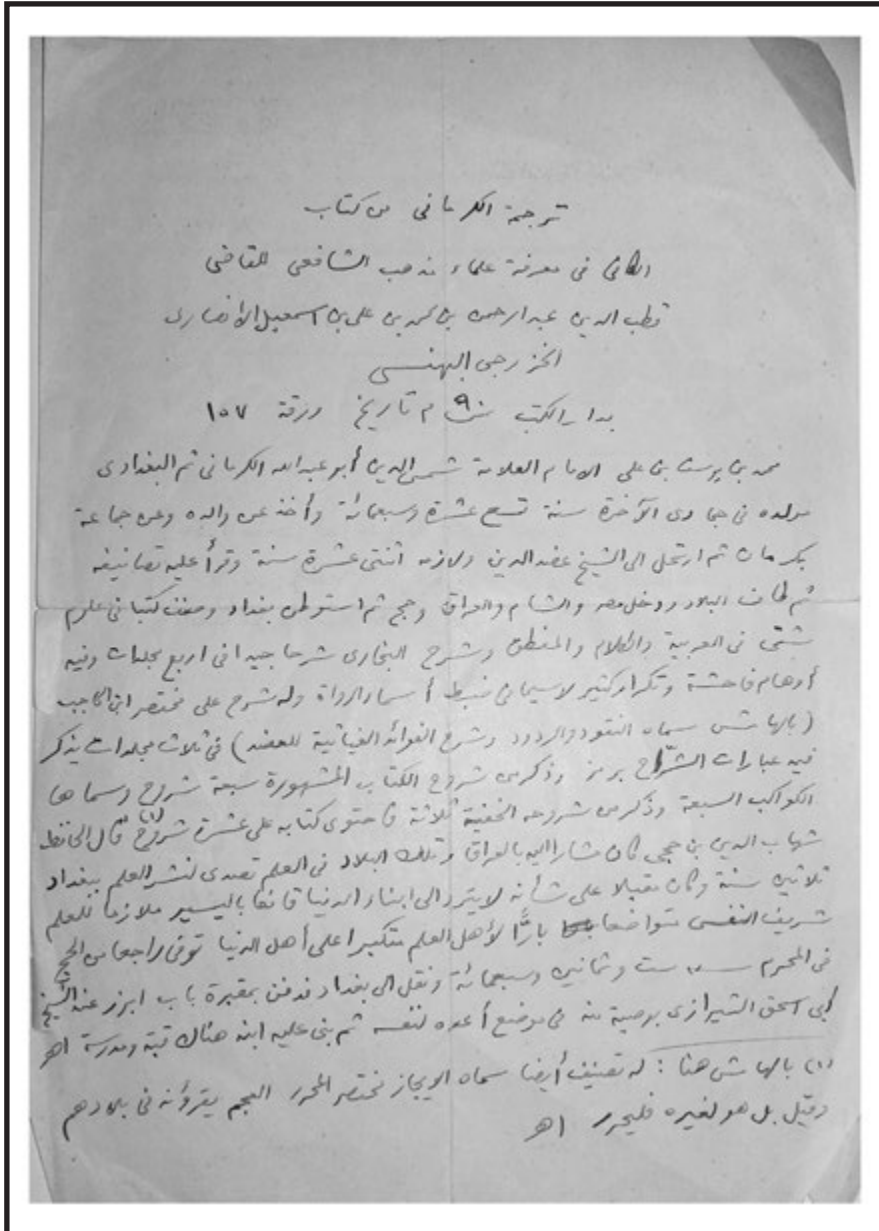 ترجمة الكرمانى من كتاب
الكافى فى معرفة علماء مذهب الشافعى للقاضى
قطب الدين عبد الرحمن بن محمد بن على بن اسمعيل الأنصارى
الخزرجى البهنسى
بدار الكتب ٩ م تاريخ ورقة ١٥٧
محمد بن يوسف بن على الامام العلامة شمس الدين أبو عبد الله الكرمانى ثم البغدادى
مولده فى جمادى الآخرة سنة تسع عشرة وسبعمائة وأخذ عن والده وعن جماعة
بكرمان ثم ارتحل الى الشيخ عضد الدين ولازمه اثنتى عشرة سنة وقرأ عليه تصانيفه
ثم طاف البلاد ودخل مصر والشام والعراق وحج ثم استوطن بغداد وصنف كتبا فى علوم
شتى فى العربية والكلام والمنطق وشرح البخارى شرحا جيدا فى اربع مجلدات وفيه
أوهام فاحشة وتكرار كثير لاسيما فى ضبط أسماء الرواة وله شرح على مختصر ابن الحاجب
(بالهامش سماه النقود والردود وشرح الفوائد الغياثية للعضد) فى ثلاث مجلدات يذكر
فيه عبارات الشرّاح برمز وذكر من شروح الكتاب المشهورة سبعة شروح وسماها
الكواكب السبعة وذكر من شروحه الخفية ثلاثة فاحتوى كتابه على عشرة شروح (١) قال الحافظ
شهاب الدين بن حجى كان مشارا اليه بالعراق وتلك البلاد فى العلم تصدى لنشر العلم ببغداد
ثلاثين سنة وكان مقبلا على شأنه لا يتردد الى ابناء الدنيا قانعا باليسير ملازما للعلم
شريف النفس متواضعا بارًّا لأهل العلم متكبرا على أهل الدنيا توفى راجعا من الحج
فى المحرم سنة ست وثمانين وسبعمائة ونقل الى بغداد فدفن بمقبرة باب ابرز عند الشيخ
أبى اسحق الشيرازى بوصية منه فى موضع أعده لنفسه ثم بنى عليه ابنه هناك قبة ومدرسة اهـ
(١) بالهامش هنا : له تصنيف أيضا سماه الايجاز مختصر المحرر العجم يقرؤنه فى بلادهم
وقيل بل هو لغيره فليحرر اهـ